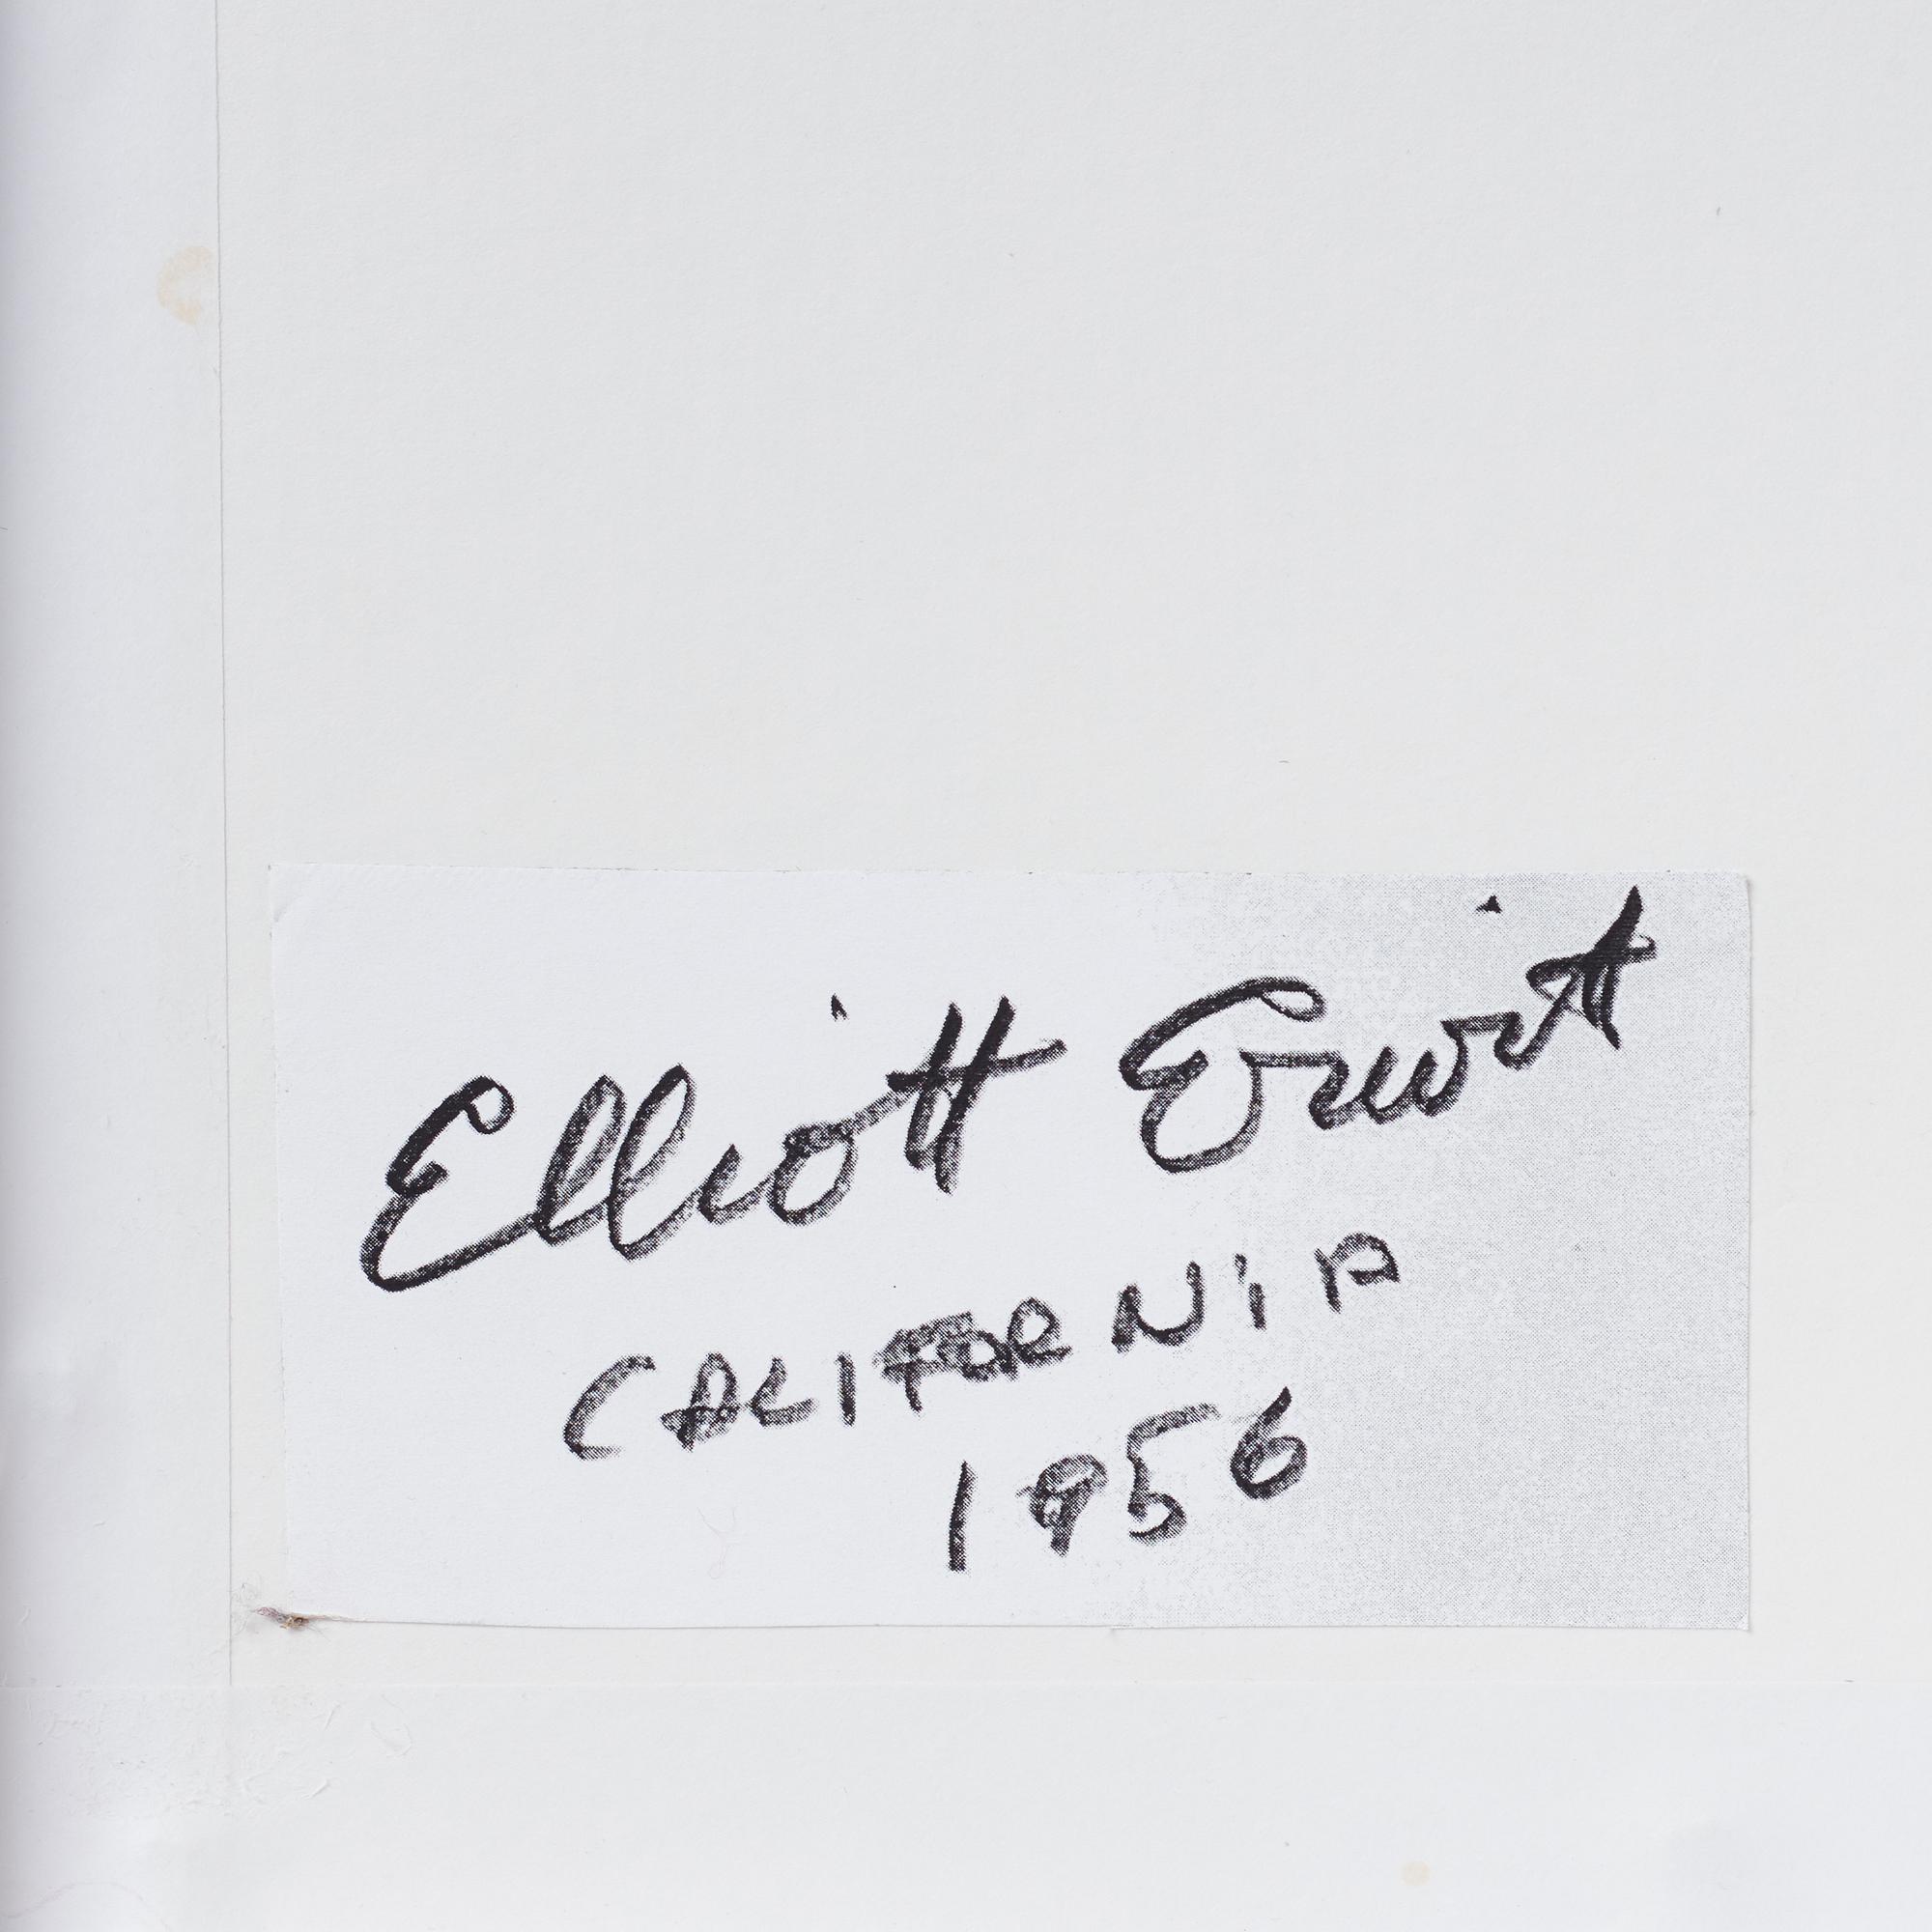 Elliott Erwitt
CALIFORNIA
1956